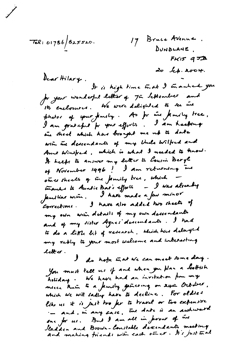 Tel: 01786/825520. 17 Bruce Avenue,
DUNBLANE,
FK15 9JB
20 Sep. 2004.
Dear Hilary,
It is high time that I thanked you
for your wonderful letter of 7th September and
its enclosures. We were delighted to see the
photos of your family. As for the family tree,
I am grateful for your efforts. I am keeping
the sheet which has brought me up to date
with the descendants of my Uncle Wilfred and
Aunt Winifred, which is what I needed to know.
It helps to answer my letter to Cousin
of November 1996! I am returning the
other sheets of the family tree, which —
thanks to Auntie efforts — I was already
familiar with. I have made a few minor
corrections. I have also added two sheets of
my own with details of my own descendants
and of my sister Agnes' descendants. I had
to do a little bit of research, which has delayed
my reply to your most welcome and interesting
letter.
I do hope that we can meet some day.
You must tell us if and when you plan a Scottish
holiday. We have had an invitation from my
niece to a family gathering in October,
which we will sadly have to decline. For oldies
like us it is just too far to travel or too expensive
— and, in any case, the date is an awkward
one for us. But I am all in favour of the
Sladden and Brown-Constable descendants meeting
and making friends with each other. It's just that